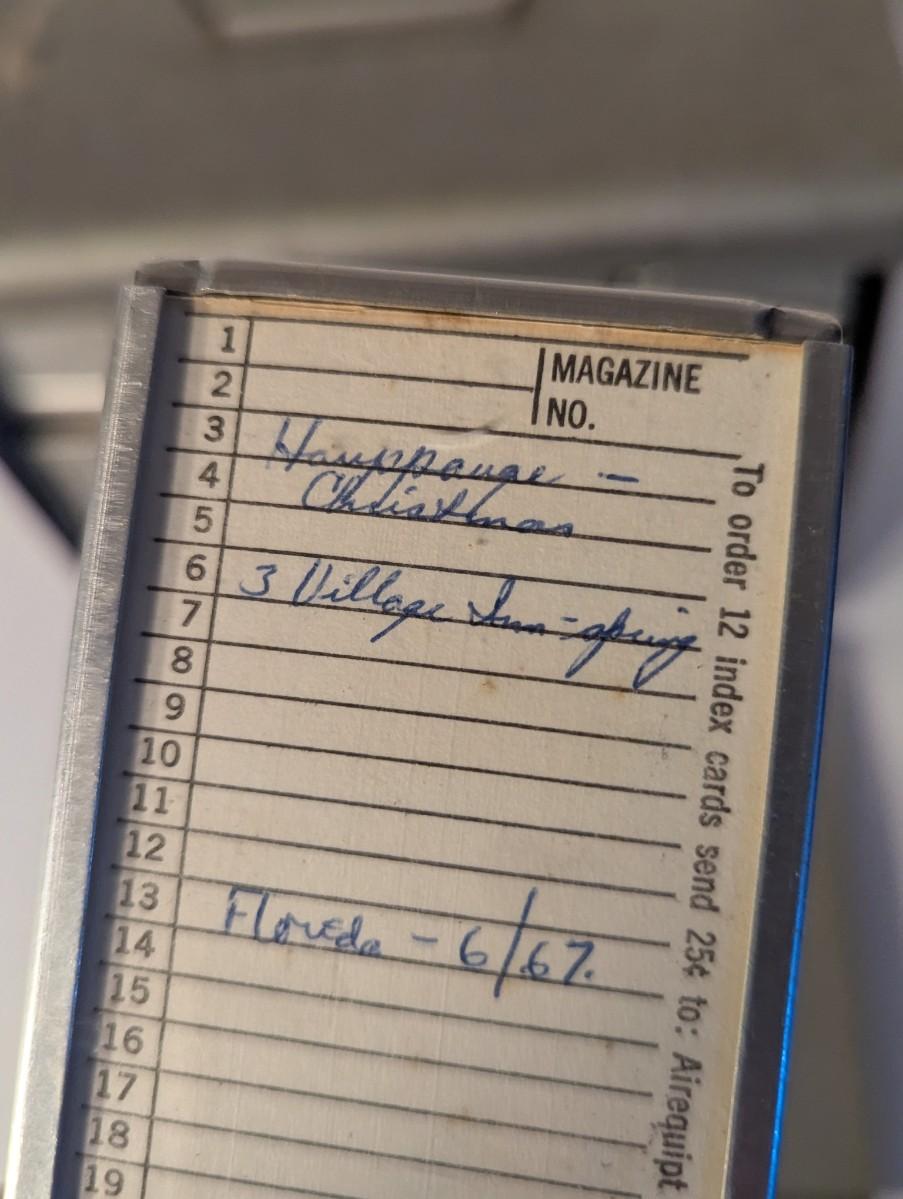 1
2
MAGAZINE
NO.
3
Hauppauge -
4
Christmas
5
6
3 Village Inn - spring
7
8
9
10
11
12
13
Florida - 6/67.
14
15
16
17
18
19
To order 12 index cards send 25¢ to: Airequipt